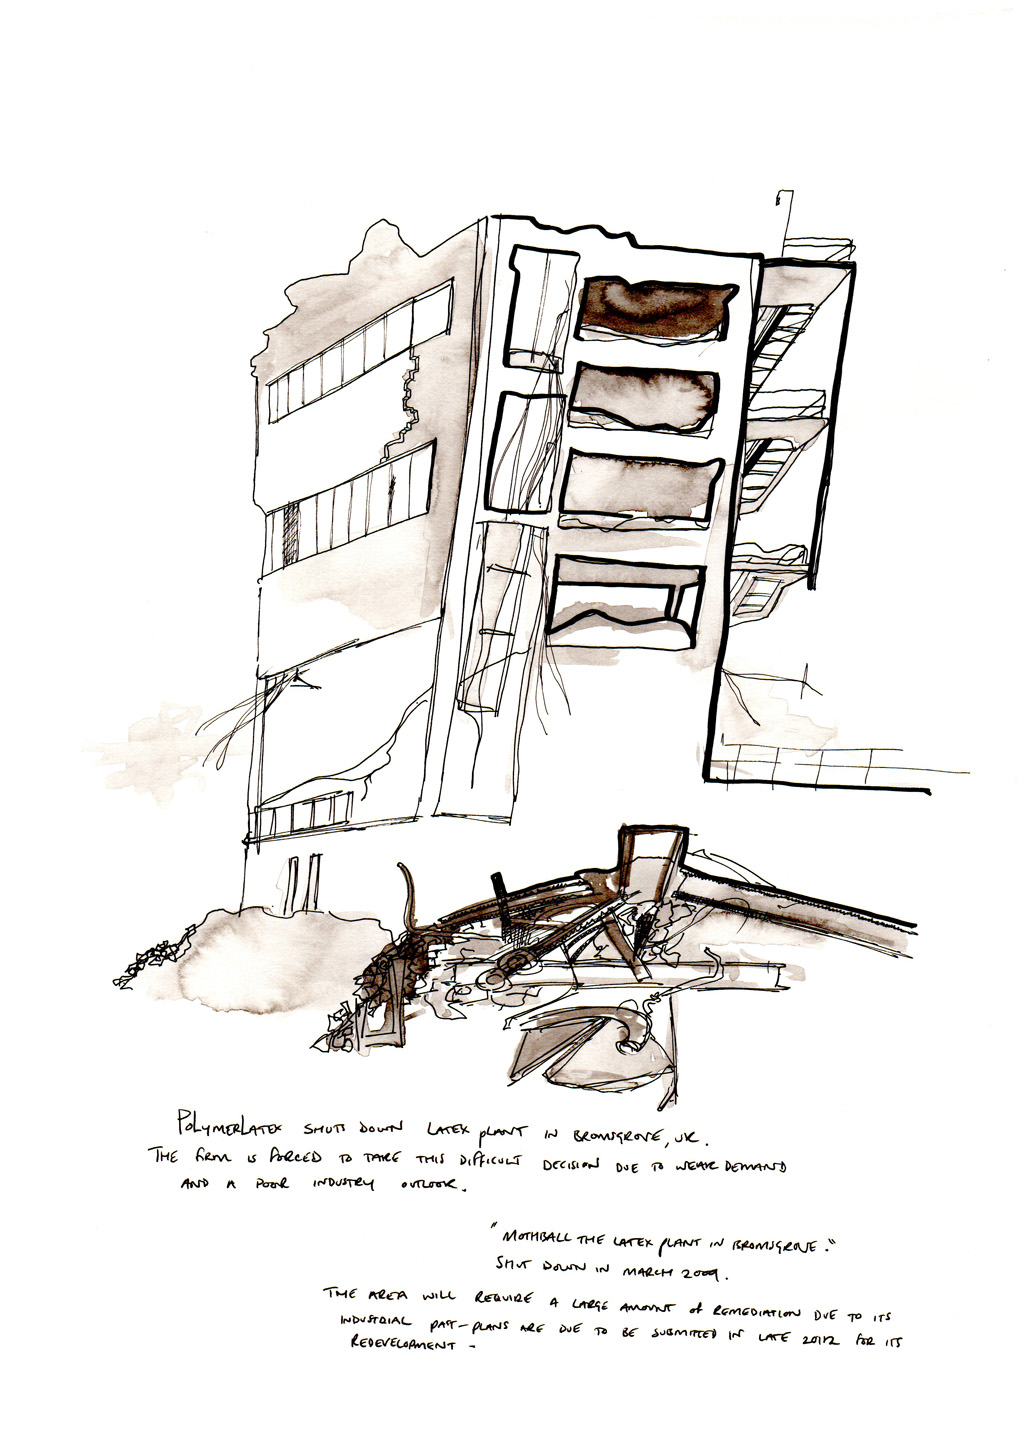 PolymerLatex shuts down latex plant in Bromsgrove, UK.
The firm is forced to take this difficult decision due to weak demand
and a poor industry outlook.
"Mothball the latex plant in Bromsgrove."
Shut down in March 2009.
The area will require a large amount of remediation due to its
industrial past - plans are due to be submitted in late 2012 for its
redevelopment -